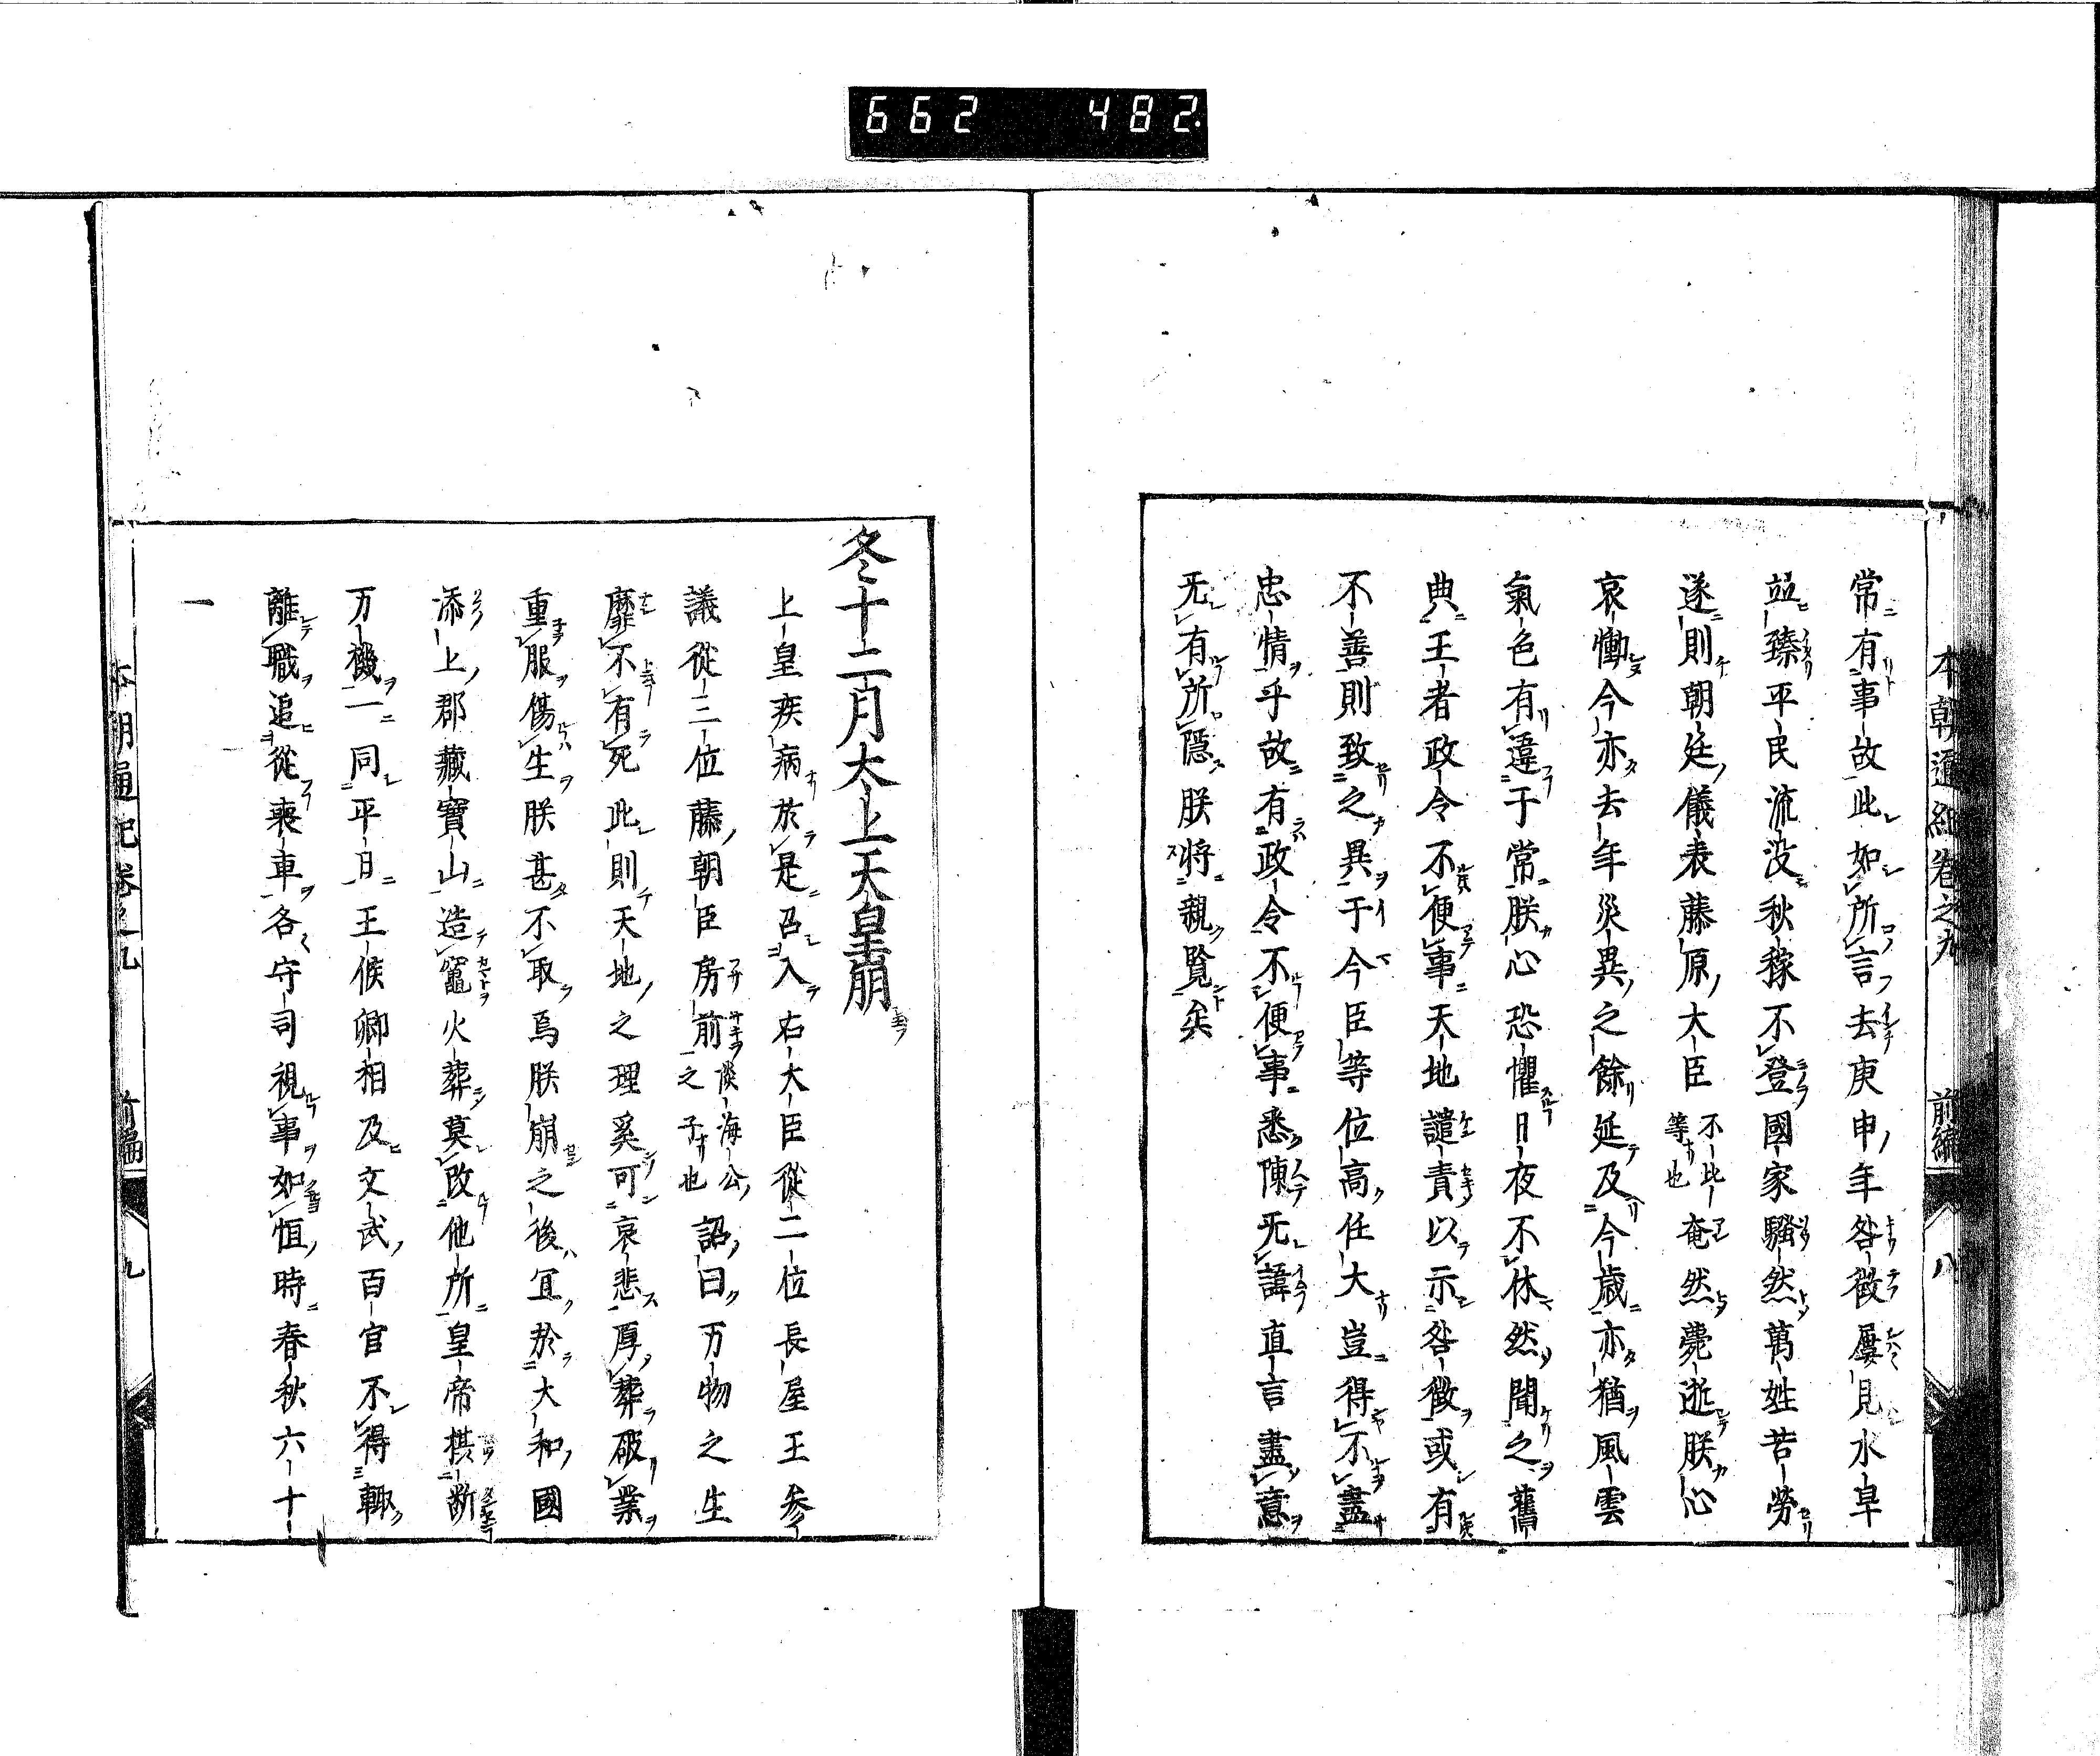 662 482
本朝通紀卷之九 前編 八
常有事故此如所言去庚申年咎徵屢見水旱
並臻平民流没秋稼不登國家騷然萬姓苦勞
遂則朝廷儀表藤原大臣不比等也奄然薨逝朕心
哀慟今亦去年災異之餘延及今歳亦猶風雲
氣色有違于常朕心恐懼日夜不休然聞之舊
典王者政令不便事天地譴責以示咎徵或有
不善則致之異于今臣等位高任大豈得不盡
忠情乎故有政令不便事悉陳无諱直言盡意
无有所隠朕將親覽矣
冬十二月太上天皇崩
上皇疾病於是召入右大臣從二位長屋王参
議從三位藤朝臣房前淡海公之子也詔曰万物之生
靡不有死此則天地之理奚可哀悲厚葬破業
重服傷生朕甚不取焉朕崩之後冝於大和國
添上郡藏寶山造竈火葬莫改他所皇帝摂断
万機一同平日王候卿相及文武百官不得輙
離職追從喪車各守司視事如恒時春秋六十
一
本朝通紀卷之九 前編 九